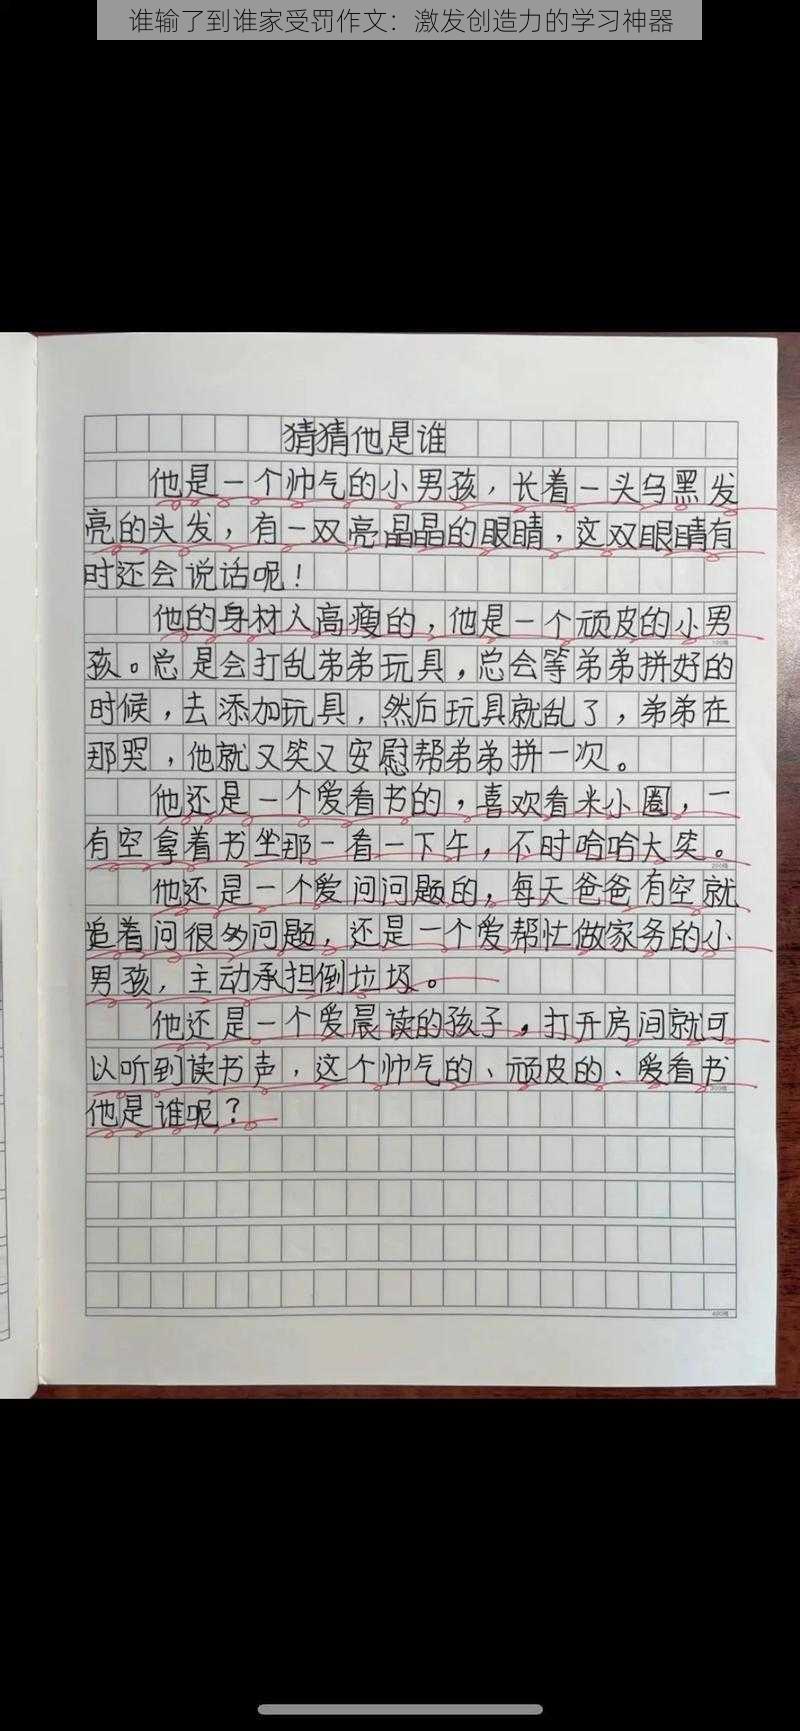 谁输了到谁家受罚作文：激发创造力的学习神器
猜猜他是谁
他是一个帅气的小男孩，长着一头乌黑发
亮的头发，有一双亮晶晶的眼睛，这双眼睛有
时还会说话呢！
他的身材人高瘦的，他是一个顽皮的小男
孩。总是会打乱弟弟玩具，总会等弟弟拼好的
时候，去添加玩具，然后玩具就乱了，弟弟在
那哭，他就又笑又安慰帮弟弟拼一次。
他还是一个爱看书的，喜欢看米小圈，一
有空拿着书坐那一看一下午，不时哈哈大笑。
他还是一个爱问问题的，每天爸爸有空就
追着问很多问题，还是一个爱帮忙做家务的小
男孩，主动承担倒垃圾。
他还是一个爱晨读的孩子，打开房间就可
以听到读书声，这个帅气的、顽皮的、爱看书
他是谁呢？
100格
200格
300格
400格